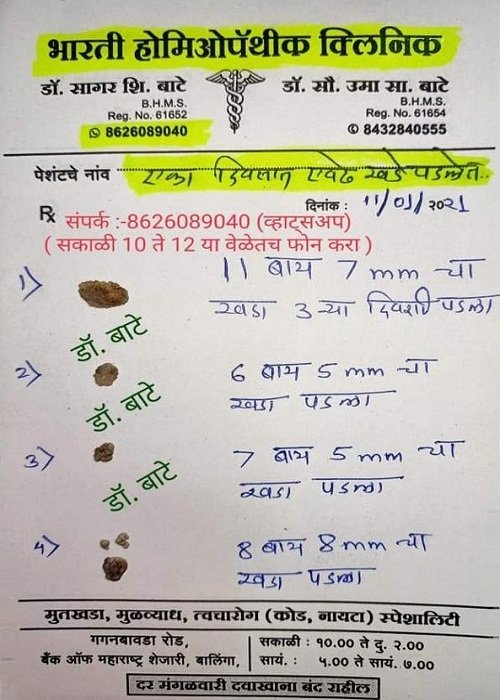 भारती होमिओपॅथीक क्लिनिक
डॉ. सागर शि. बाटे
B.H.M.S.
Reg. No. 61652
8626089040
डॉ. सौ. उमा सा. बाटे
B.H.M.S.
Reg. No. 61654
8432840555
पेशंटचे नांव एका दिवसात एवढे खडे पडलेत..
दिनांक : 11/01/२०21
℞ संपर्क :-8626089040 (व्हाट्सअप)
( सकाळी 10 ते 12 या वेळेतच फोन करा )
1) 11 बाय 7 mm चा
खडा 3 ऱ्या दिवशी पडला
डॉ. बाटे
2) 6 बाय 5 mm चा
खडा पडला
डॉ. बाटे
3) 7 बाय 5 mm चा
खडा पडला
डॉ. बाटे
4) 8 बाय 8 mm चा
खडा पडला
मुतखडा, मुळव्याध, त्वचारोग (कोड, नायटा) स्पेशालिटी
गगनबावडा रोड,
बँक ऑफ महाराष्ट्र शेजारी, बालिंगा,
सकाळी : १०.०० ते दु. २.००
सायं. : ५.०० ते सायं. ७.००
दर मंगळवारी दवाखाना बंद राहील